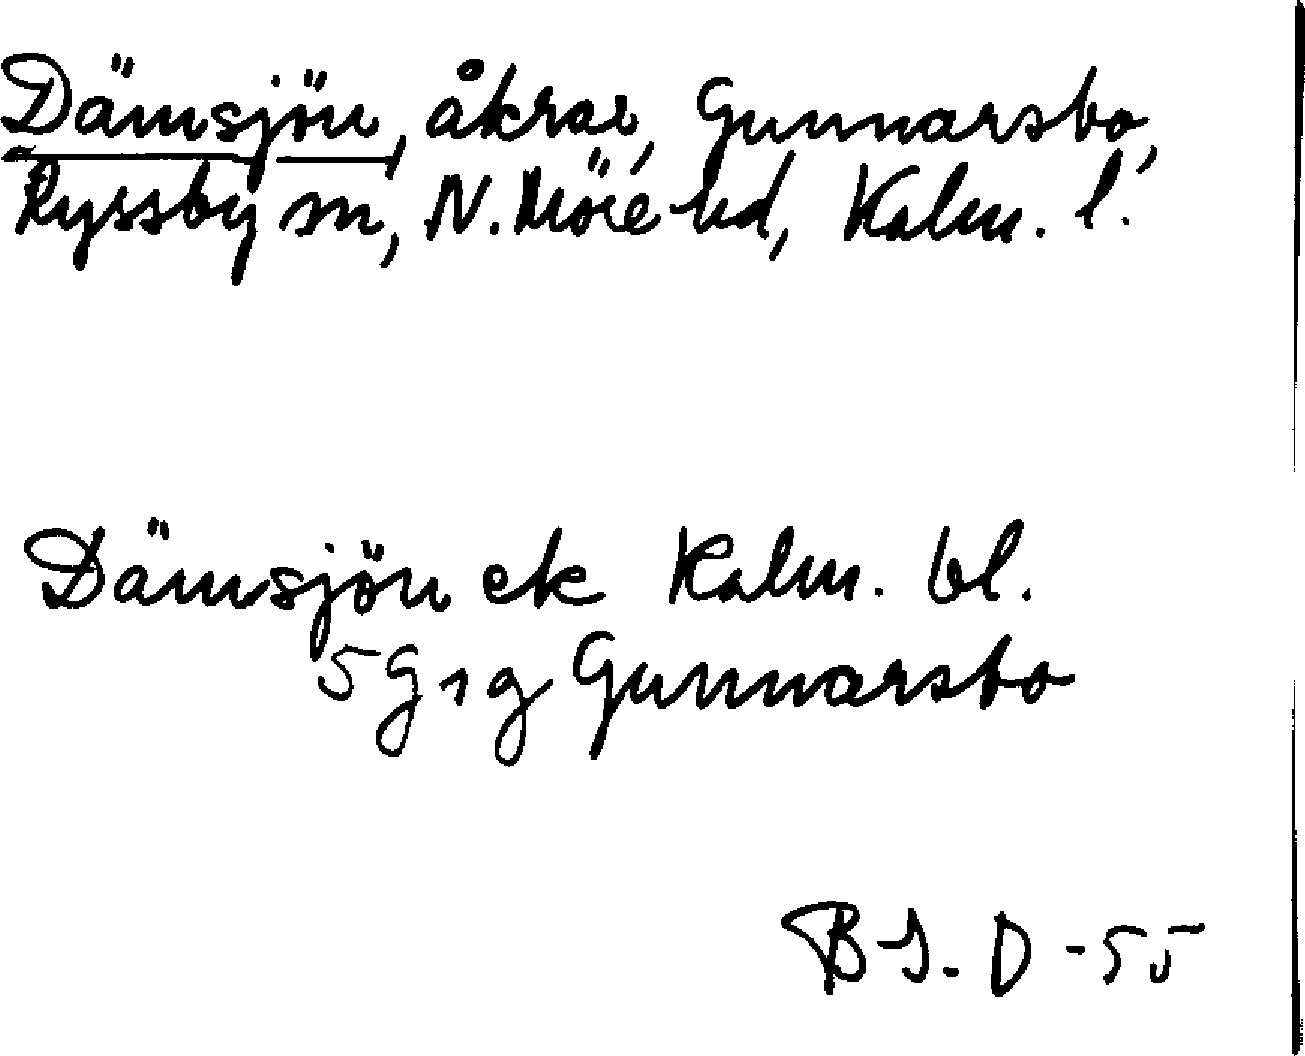 Dämsjön, åkrar, Gunnarsbo,
Ryssby sn, N. Möre hd, Kalm. l.
Dämsjön ek Kalm. bl.
5 G 1 g Gunnarsbo
B-J. D -55